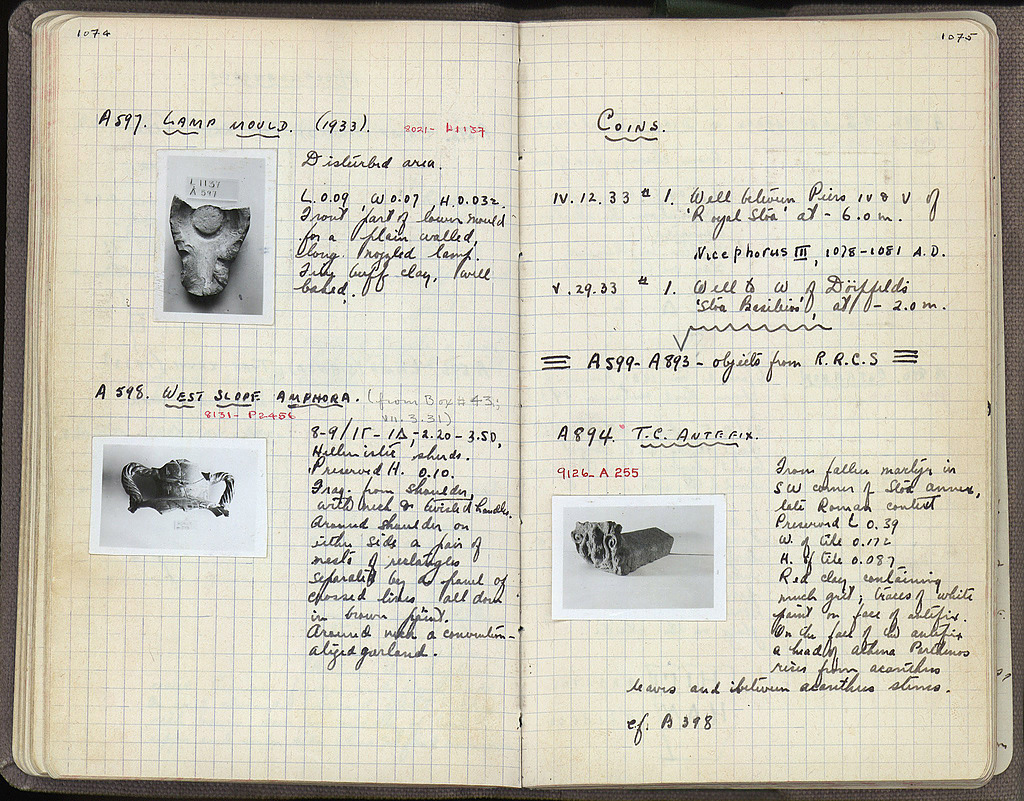 1074
A 597. LAMP MOULD. (1933). 8021- L1137
L 1137
A 597
Disturbed area.
L. 0.09, W 0.07, H. 0.032.
Front part of lower mould
for a plain walled,
long nozzled lamp.
buff clay, well
baked.
A 598. WEST SLOPE AMPHORA. (from Box # 43;
VII.3.31)
8131- P2456
8-9/ΙΓ-ΙΔ; -2.20-3.50,
Hellenistic sherds.
Preserved H. 0.10.
Frag. from shoulder,
with neck & twisted handles.
Around shoulder on
either side a pair of
nests of rectangles
separated by a panel of
crossed lines all done
in brown paint.
Around neck a convention-
alized garland.
1075
COINS.
IV. 12. 33 # 1. Well between Piers IV & V of
'Royal Stoa' at - 6.0 m.
Nicephorus III, 1078-1081 A.D.
V. 29. 33 # 1. Well to W of Dörpfeld's
'Stoa Basileios', at - 2.0 m.
A 599 - A 893 - objects from R.R.C.S
A 894. T.C. ANTEFIX.
9126- A 255
From fallen martyr in
SW corner of Stoa annex,
late Roman context
Preserved L 0.39
W. of tile 0.172
H. of tile 0.087
Red clay containing
much grit; traces of white
paint on face of antefix.
On the face of the antefix
a head of Athena Parthenos
rises from acanthus
leaves and between acanthus stems.
cf. B 398